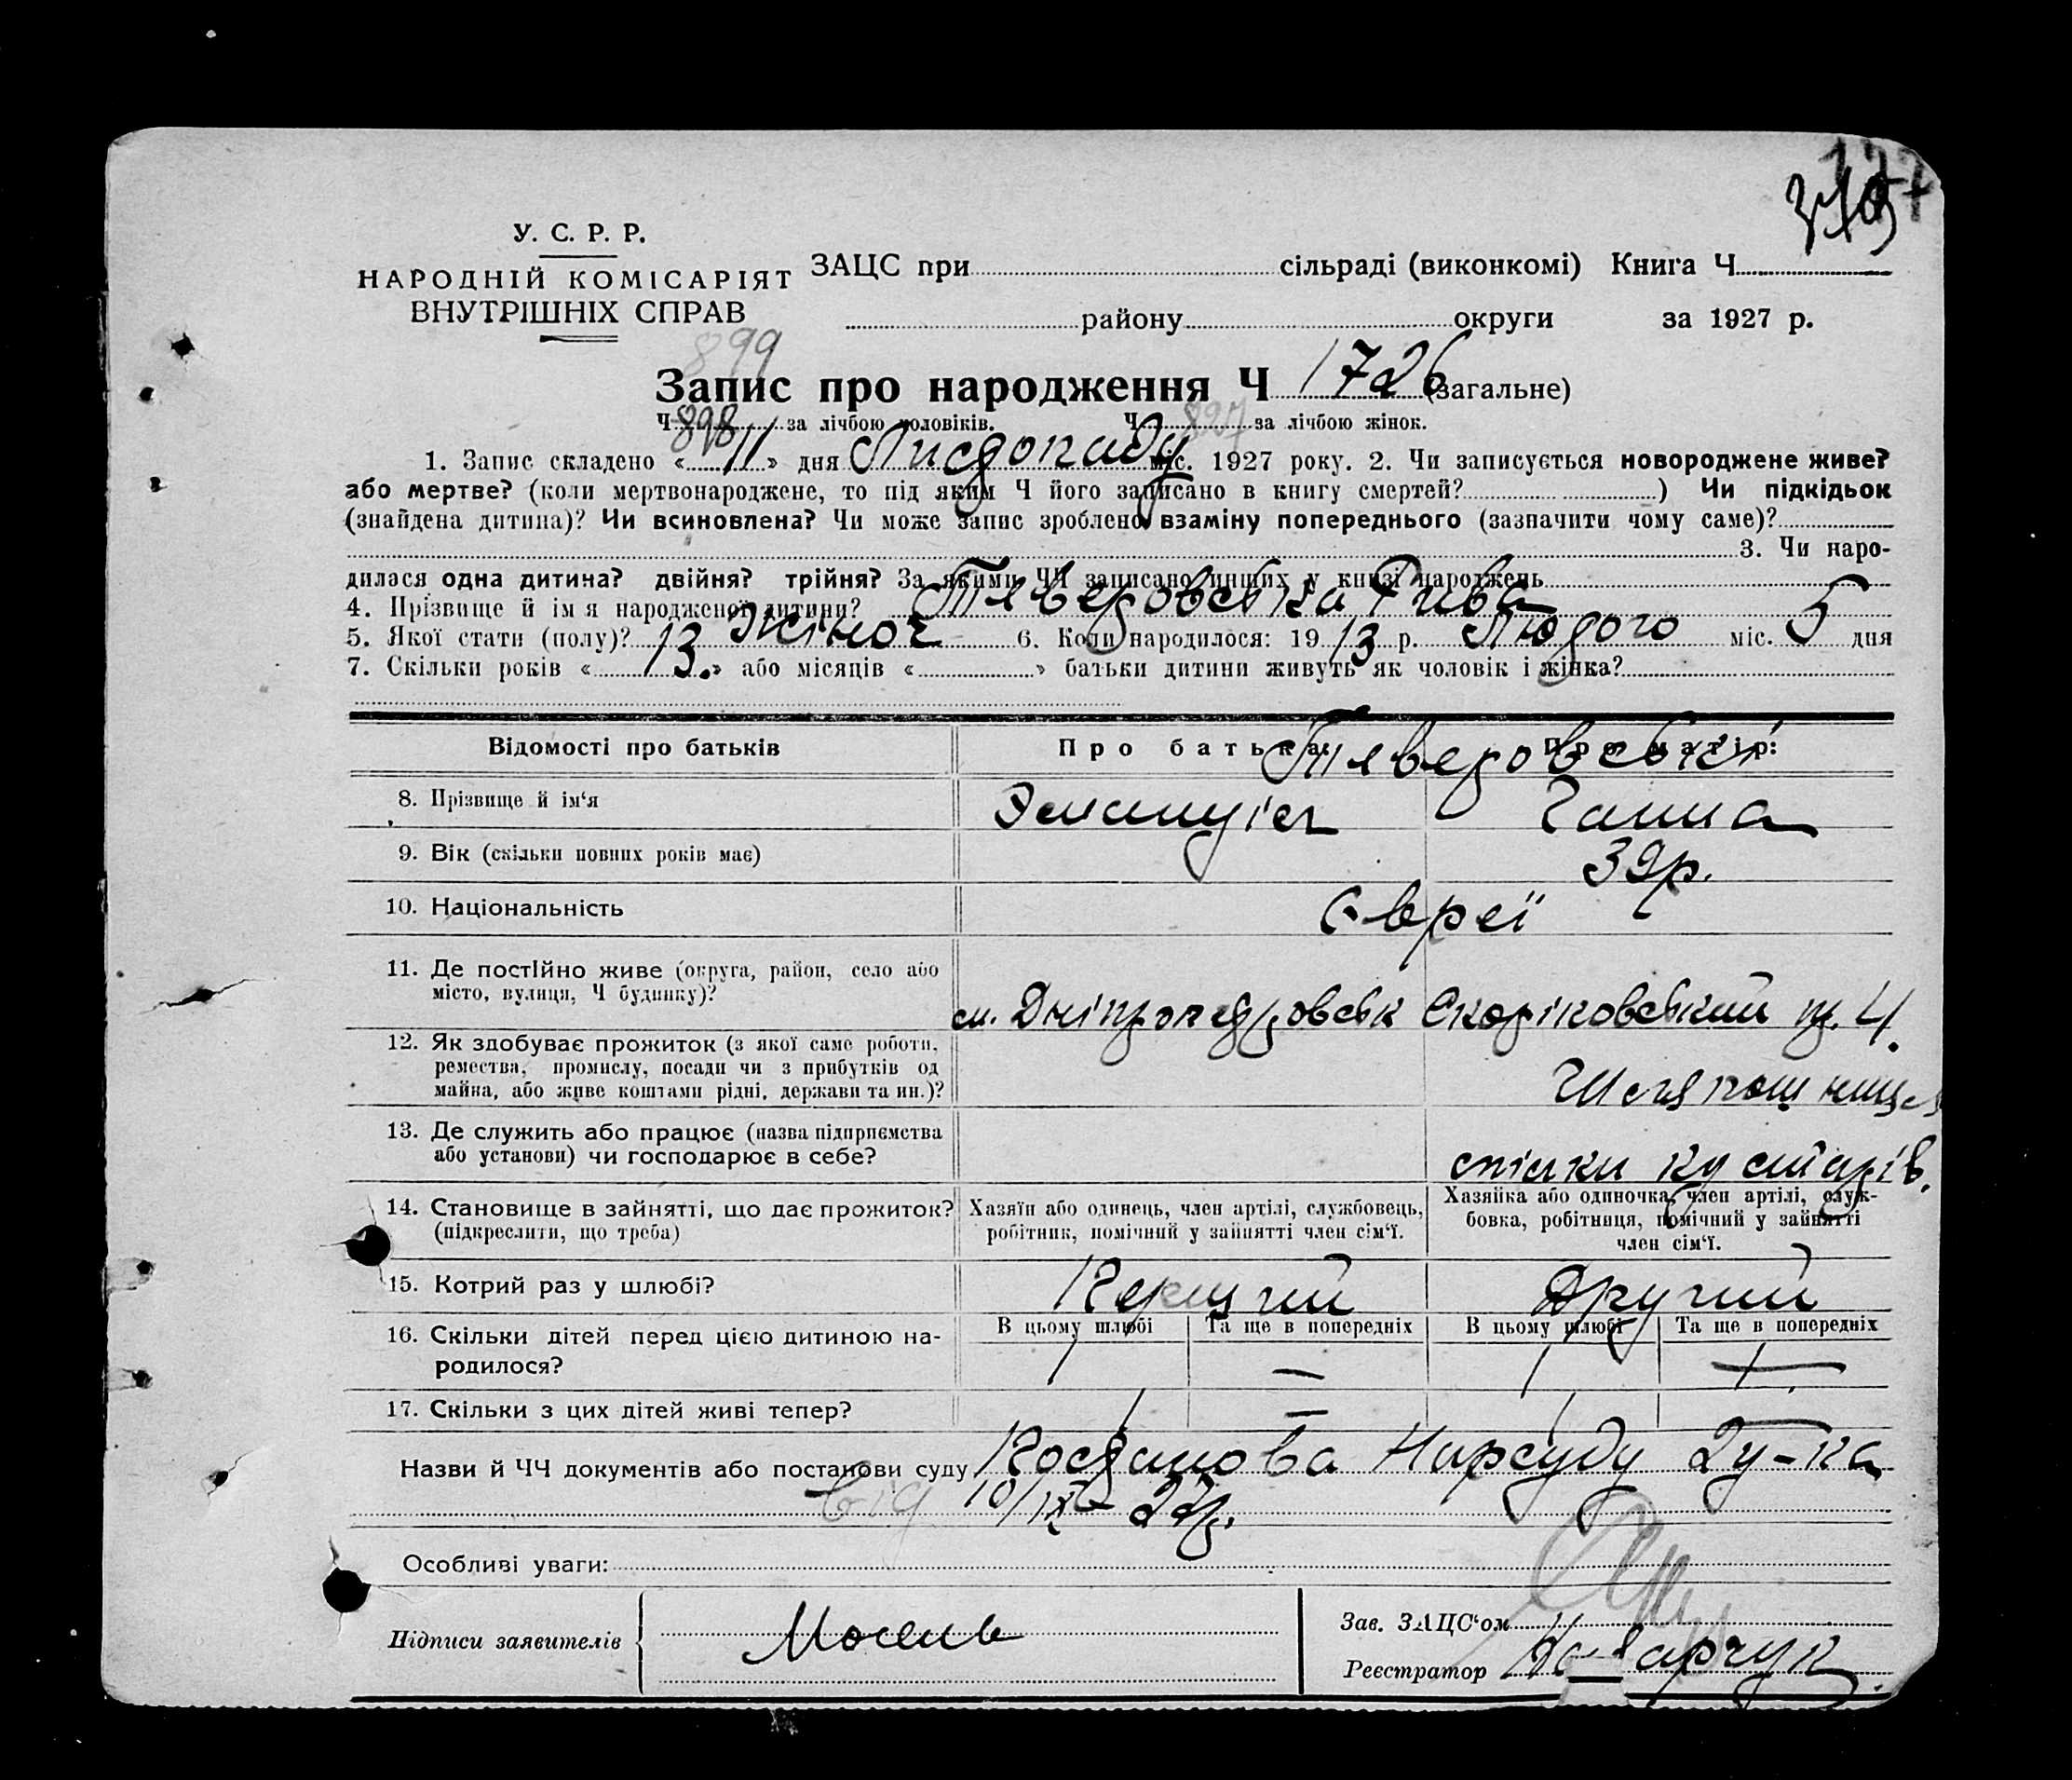 У. С. Р. Р.
НАРОДНІЙ КОМІСАРІЯТ
ВНУТРІШНІХ СПРАВ
ЗАЦС при сільраді (виконкомі) Книга Ч
району округи за 1927 р.
899
Запис про народження Ч 1726 (загальне)
Ч 898 за лічбою чоловіків. Ч 827 за лічбою жінок.
1. Запис складено « 11 » дня Листопаду міс. 1927 року. 2. Чи записується новороджене живе?
або мертве? (коли мертвонароджене, то під яким Ч його записано в книгу смертей? ) Чи підкідьок
(знайдена дитина)? Чи всиновлена? Чи може запис зроблено взаміну попереднього (зазначити чому саме)?
3. Чи наро-
дилася одна дитина? двійня? трійня? За якими ЧЧ записано инших у книзі народжень
4. Прізвище й ім'я народженої дитини? Тяверовська Рива
5. Якої стати (полу)? Жіноч 6. Коли народилося: 19 13 р. Лютого міс. 5 дня
7. Скільки років « 13. » або місяців « » батьки дитини живуть як чоловік і жінка?
Відомості про батьків Про батька: Про матір:
Тяверовські
8. Прізвище й ім'я Эмануіел Ганна
9. Вік (скільки повних років має) 39р.
10. Національність Євреї
11. Де постійно живе (округа, район, село або
місто, вулиця, Ч будинку)?
м. Дніпропетровськ Скоріковський пр. 4.
12. Як здобуває прожиток (з якої саме роботи,
ремества, промислу, посади чи з прибутків од
майна, або живе коштами рідні, держави та ин.)?
13. Де служить або працює (назва підприємства
або установи) чи господарює в себе?
спілки кустарів.
14. Становище в зайнятті, що дає прожиток?
(підкреслити, що треба)
Хазяїн або одинець, член артілі, службовець,
робітник, помічний у зайнятті член сім'ї.
Хазяйка або одиночка, член артілі, служ-
бовка, робітниця, помічний у зайнятті
член сім'ї.
15. Котрий раз у шлюбі? Перший Другий
16. Скільки дітей перед цією дитиною на-
родилося?
В цьому шлюбі Та ще в попередніх В цьому шлюбі Та ще в попередніх
1 — 1
17. Скільки з цих дітей живі тепер? 1 — 1 —
Назви й ЧЧ документів або постанови суду Постанова Нарсуду 2у-ка
від 10/IX- 27р.
Особливі уваги:
Підписи заявителів
Зав. ЗАЦС'ом
Реєстратор